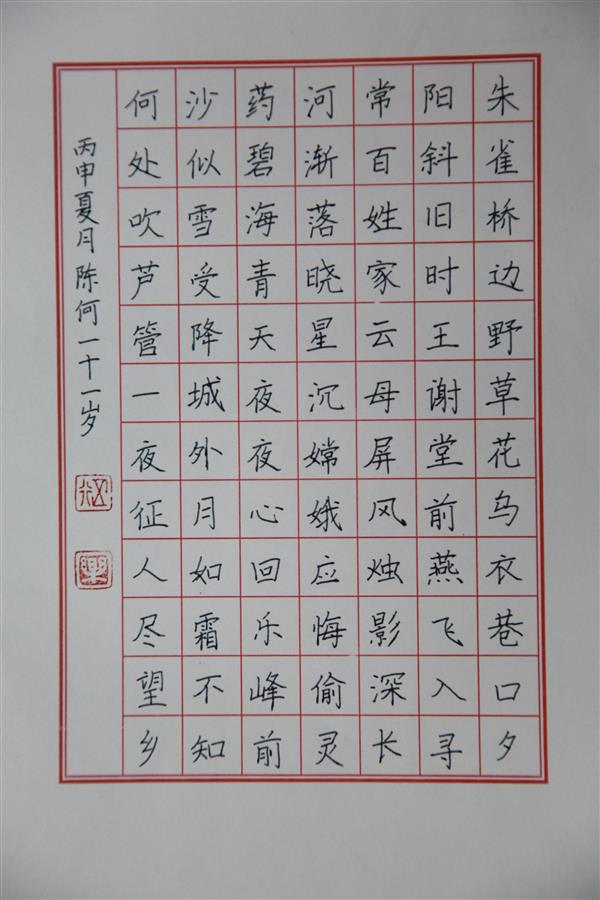 朱雀桥边野草花乌衣巷口夕
阳斜旧时王谢堂前燕飞入寻
常百姓家云母屏风烛影深长
河渐落晓星沉嫦娥应悔偷灵
药碧海青天夜夜心回乐峰前
沙似雪受降城外月如霜不知
何处吹芦管一夜征人尽望乡
丙申夏月陈何一十一岁